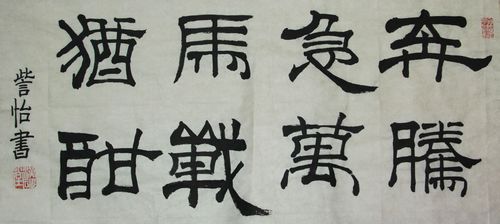 奔騰
急萬
馬戰
猶酣
訾怡書